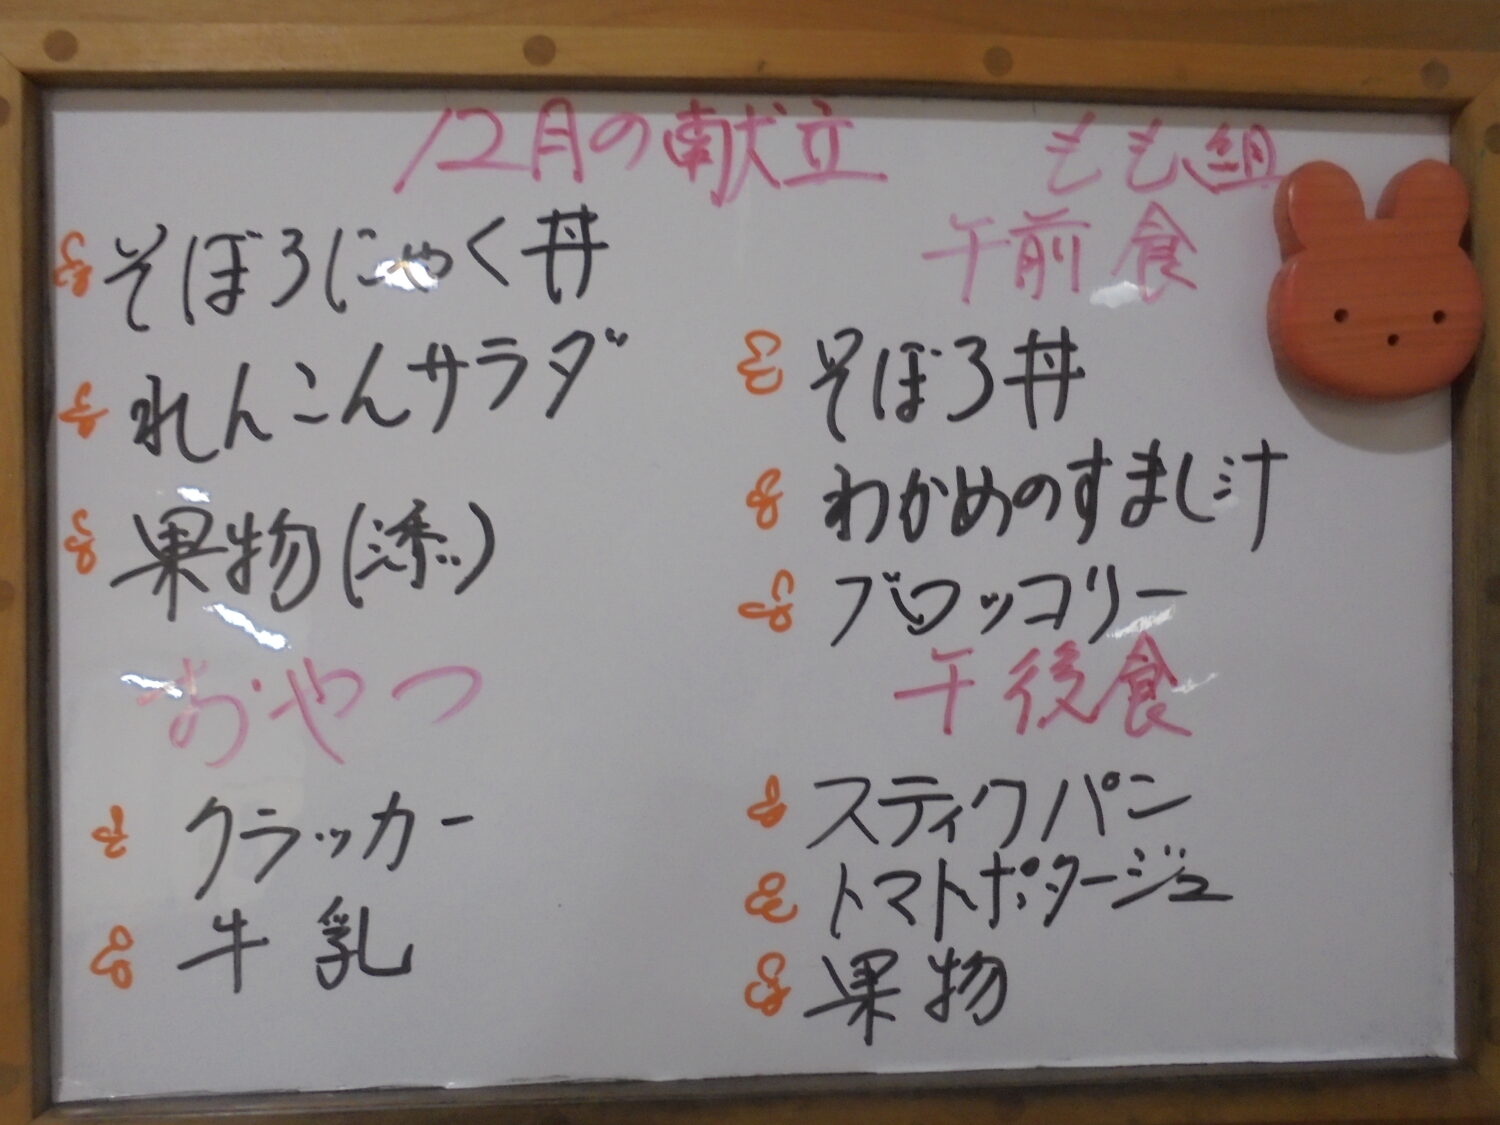 12月の献立
そぼろにゃく丼
れんこんサラダ
果物(添)
おやつ
クラッカー
牛乳
もも組
午前食
そぼろ丼
わかめのすまし汁
ブロッコリー
午後食
スティクパン
トマトポタージュ
果物